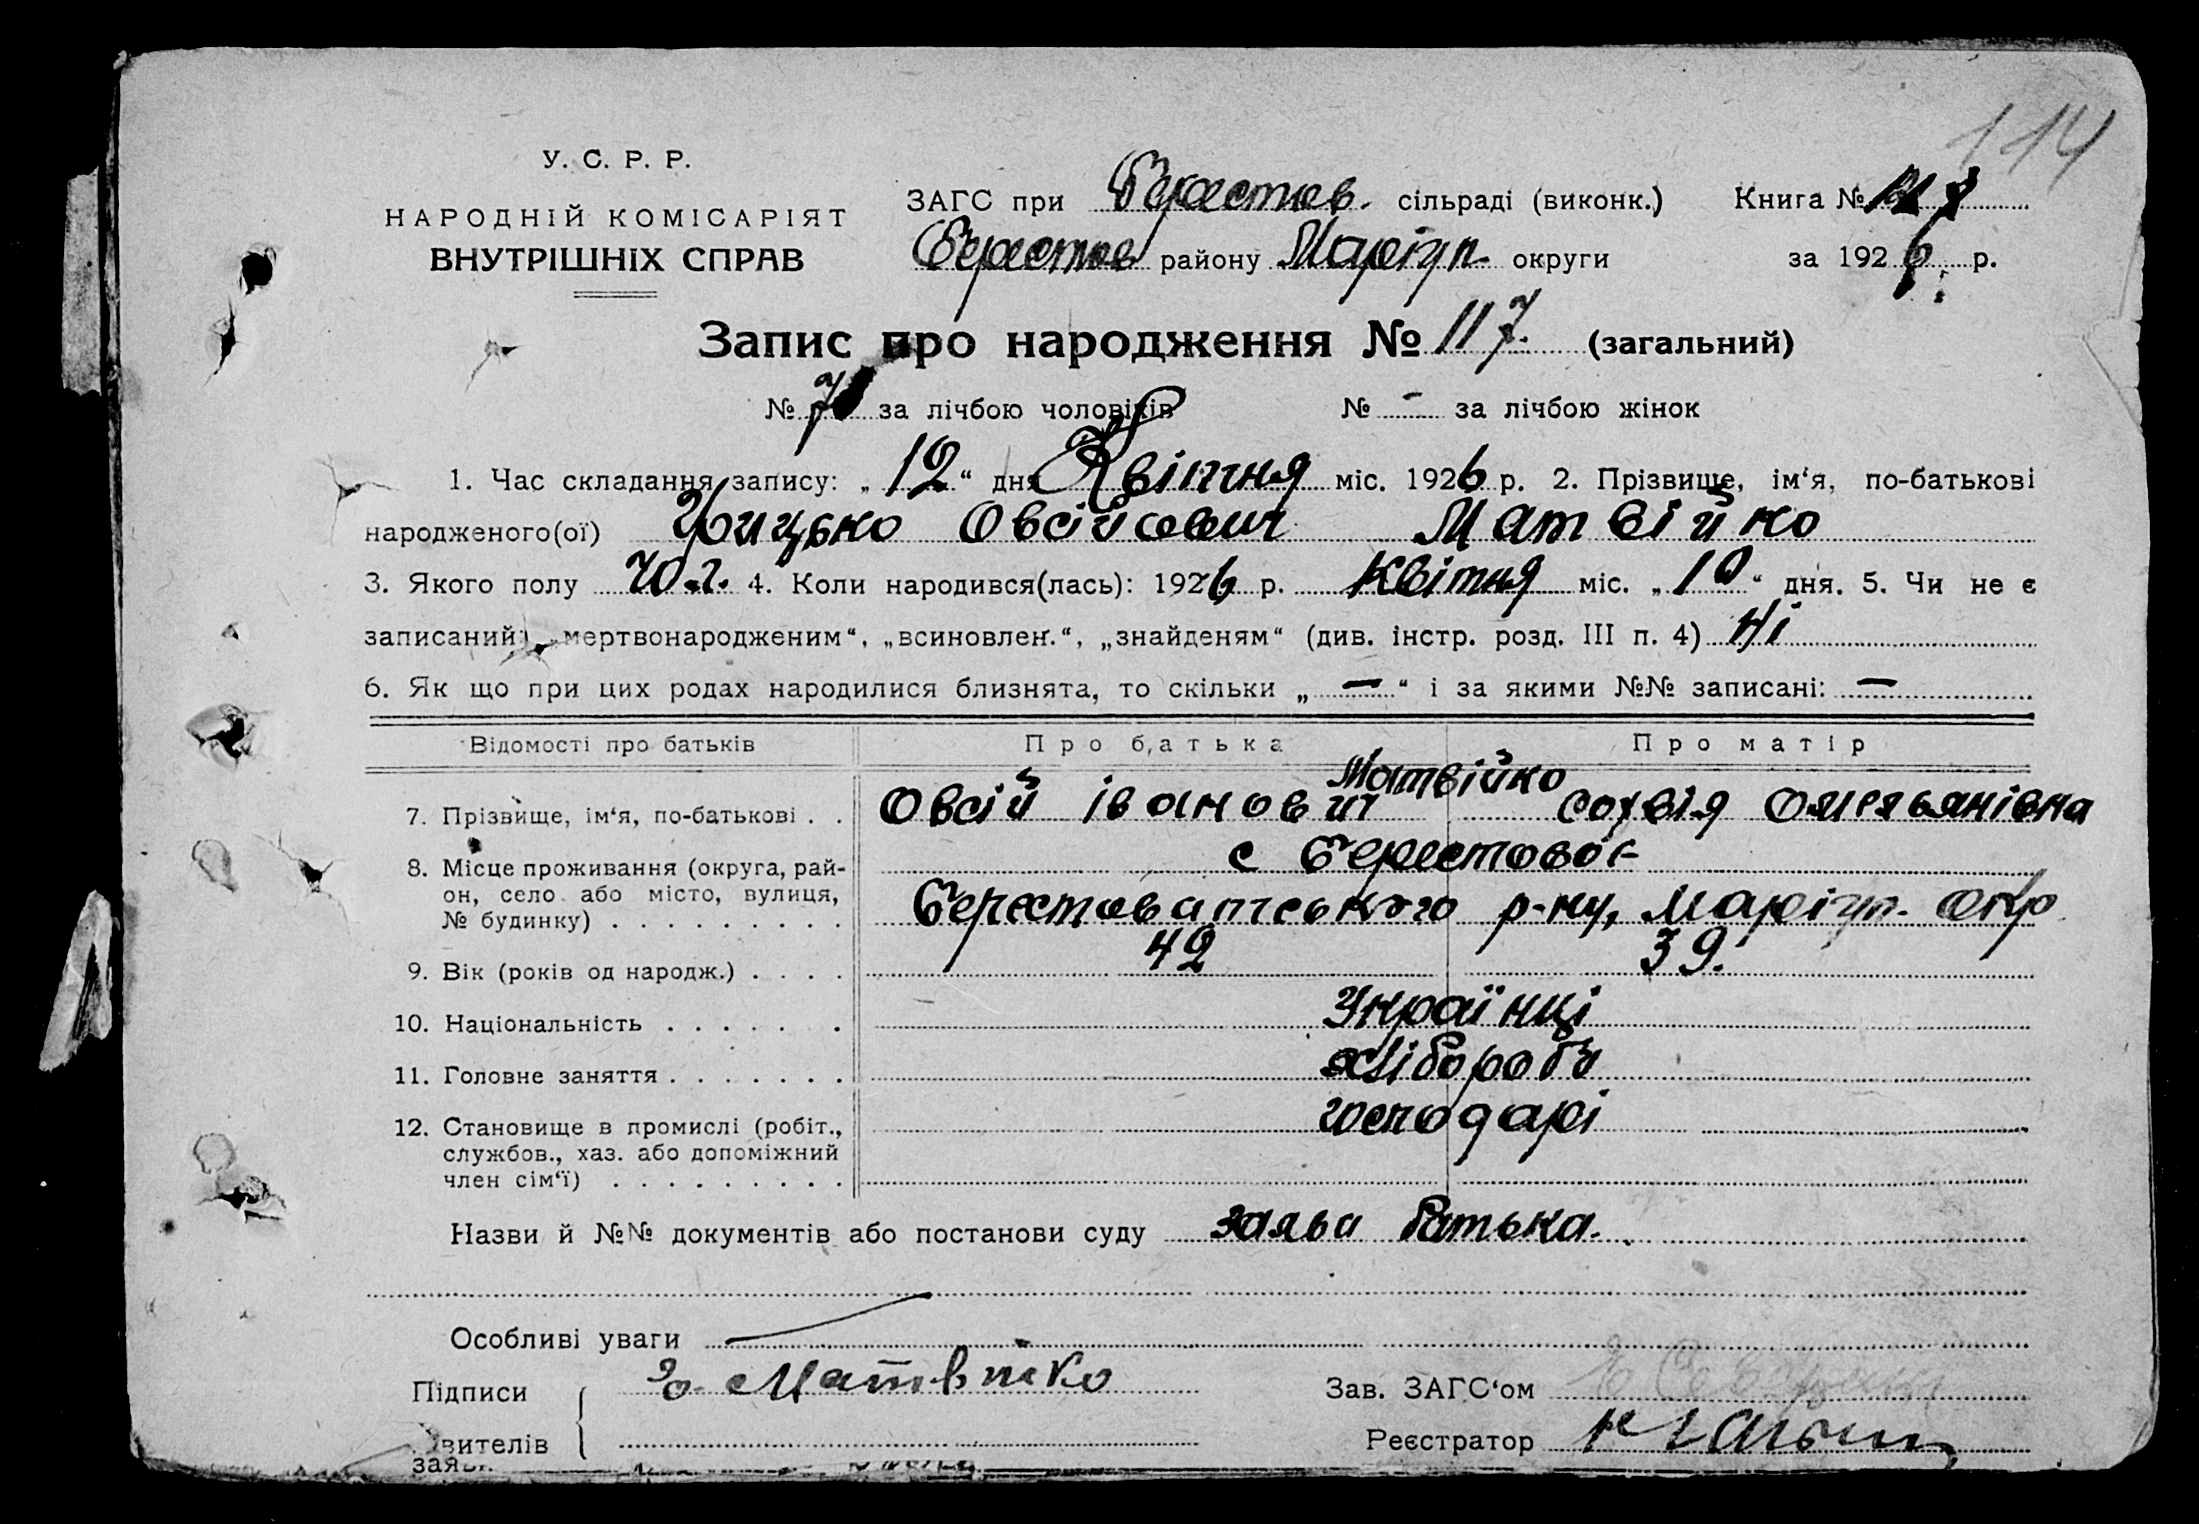 114
У. С. Р. Р.
НАРОДНІЙ КОМІСАРІЯТ
ВНУТРІШНІХ СПРАВ
ЗАГС при Берестов. сільраді (виконк.) Книга №
Берестов району Маріуп. округи за 1926 р.
Запис про народження № 117. (загальний)
№ 7 за лічбою чоловіків № - за лічбою жінок
1. Час складання запису: „12“ дня Квітня міс. 1926 р. 2. Прізвище, ім‘я, по-батькові
народженого(ої) Грицько Овсійович Матвійко
3. Якого полу Чол. 4. Коли народився(лась): 1926 р. Квітня міс. „10“ дня. 5. Чи не є
записаний: „мертвонародженим“, „всиновлен.“, „знайденям“ (див. інстр. розд. III п. 4) Ні
6. Як що при цих родах народилися близнята, то скільки „—“ і за якими №№ записані: —
Відомості про батьків Про батька Про матір
Матвійко
7. Прізвище, ім‘я, по-батькові . . Овсій Іванович Софія Омельянівна
8. Місце проживання (округа, рай-
он, село або місто, вулиця,
№ будинку) . . . . . . . . .
с Берестової
Берестоватського р-ну, Маріуп. окр
9. Вік (років од народж.) . . . . 42 39.
10. Національність . . . . . . Українці
11. Головне заняття . . . . . . . хлібороби
12. Становище в промислі (робіт.,
службов., хаз. або допоміжний
член сім‘ї) . . . . . . . . .
господарі
Назви й №№ документів або постанови суду заява батька.
Особливі уваги
Підписи Матвійко Зав. ЗАГС‘ом
явителів Реєстратор